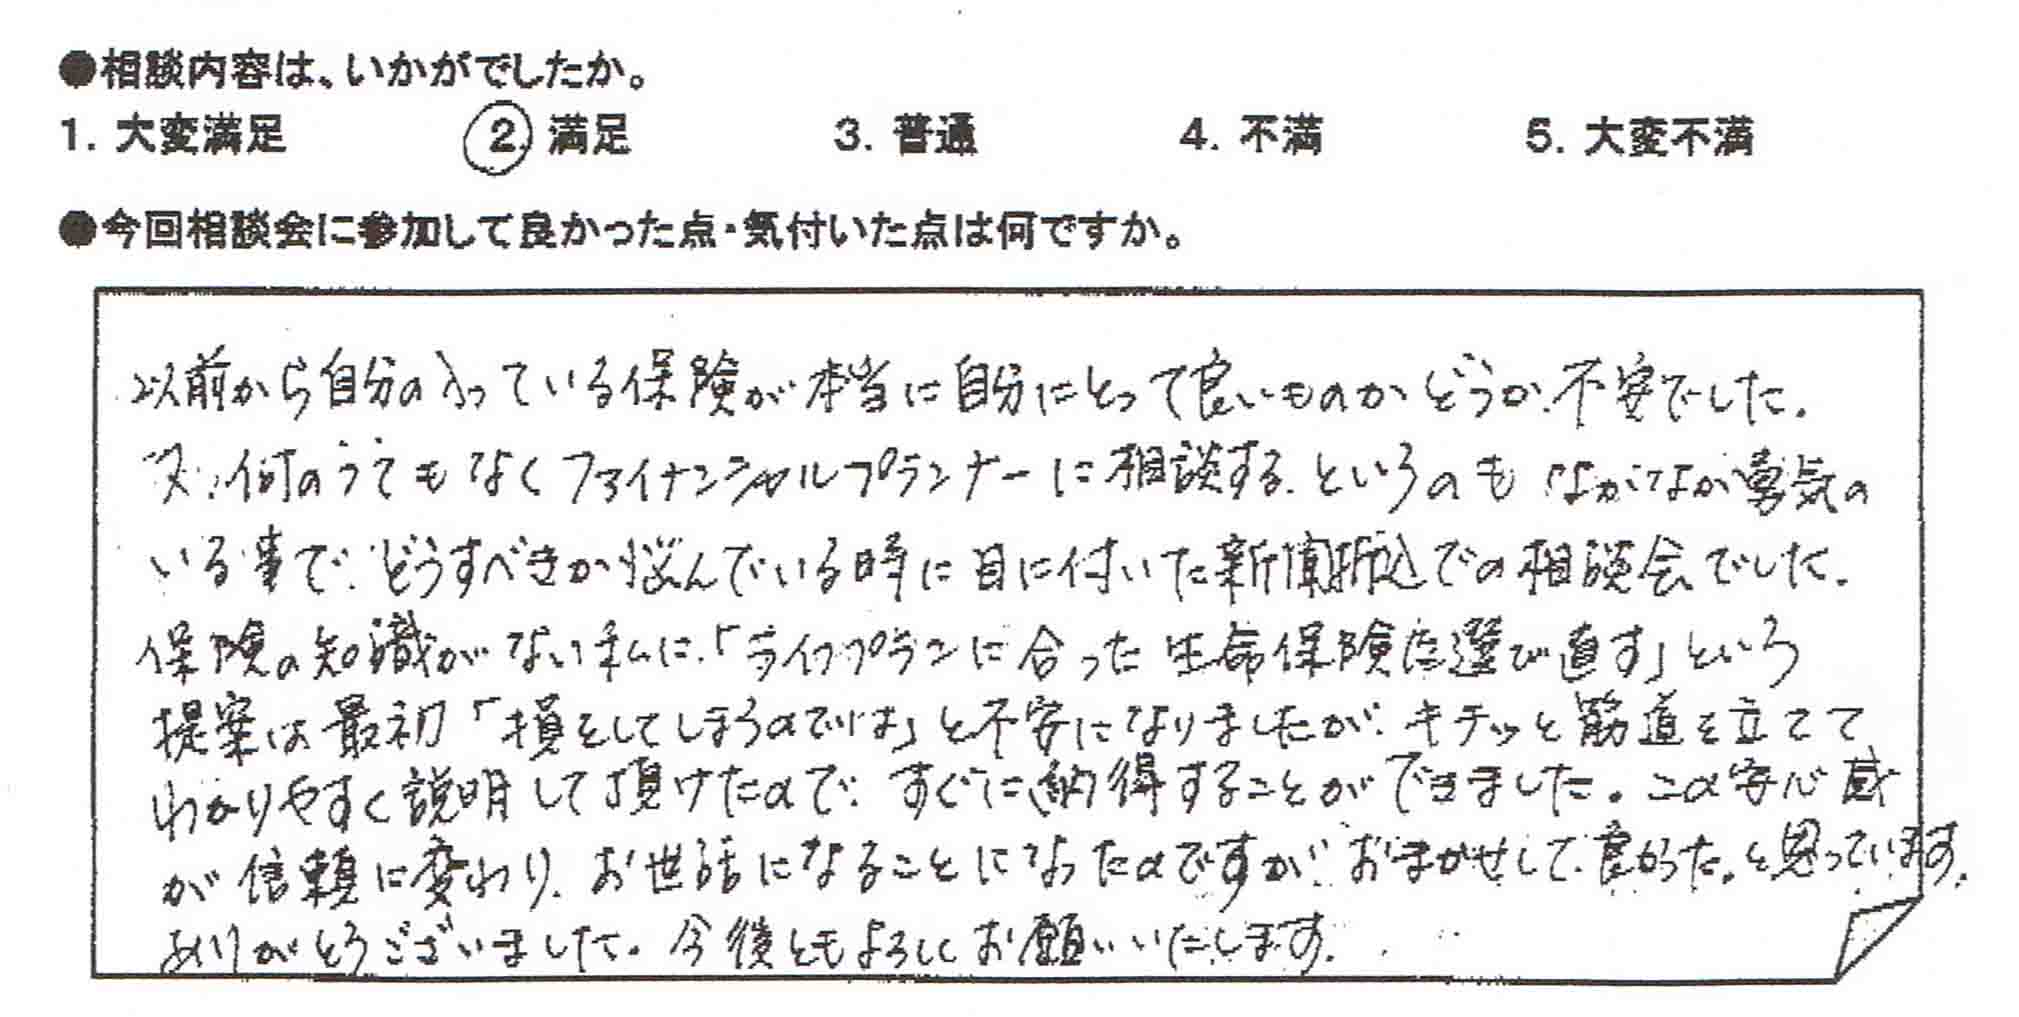 ●相談内容は、いかがでしたか。
1. 大変満足 2. 満足 3. 普通 4. 不満 5. 大変不満
●今回相談会に参加して良かった点・気付いた点は何ですか。
以前から自分の入っている保険が本当に自分にとって良いものかどうか、不安でした。
又、何のうてもなくファイナンシャルプランナーに相談する、というのも なかなか勇気の
いる事で、どうすべきか悩んでいる時に目に付いた新聞折込での相談会でした。
保険の知識がない私に、「ライフプランに合った生命保険に選び直す」という
提案は最初「損をしてしまうのでは」と不安になりましたが、キチッと筋道を立てて
わかりやすく説明して頂けたので、すぐに納得することができました。この安心感
が信頼に変わり、お世話になることになったのですが、おまかせして、良かった。と思っています。
ありがとうございました。今後ともよろしくお願いいたします。